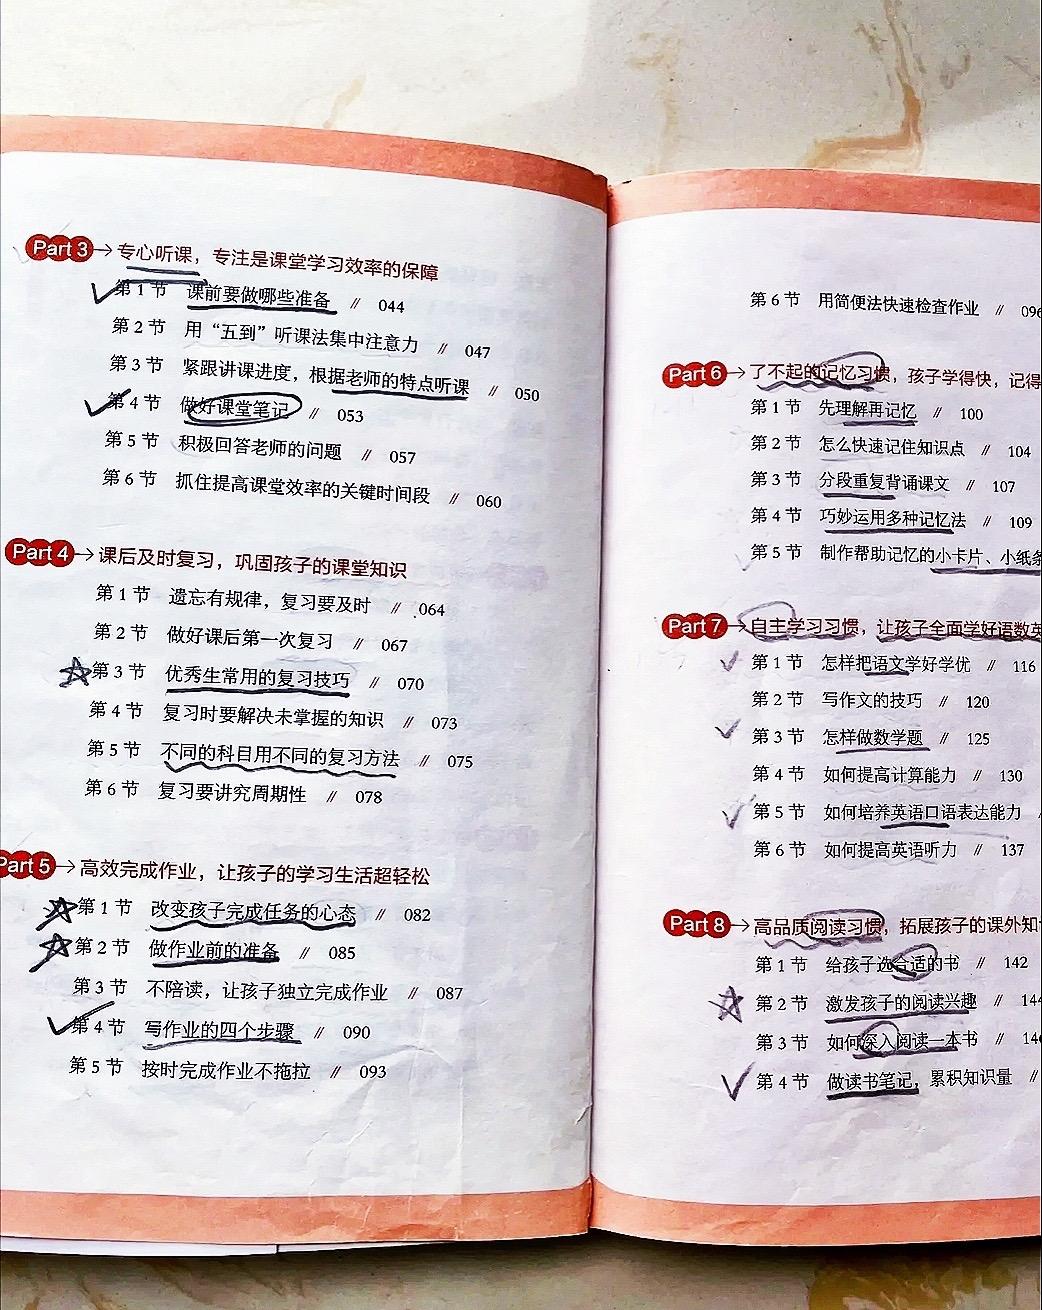 Part 3 → 专心听课，专注是课堂学习效率的保障
第 1 节 课前要做哪些准备 // 044
第 2 节 用“五到”听课法集中注意力 // 047
第 3 节 紧跟讲课进度，根据老师的特点听课 // 050
第 4 节 做好课堂笔记 // 053
第 5 节 积极回答老师的问题 // 057
第 6 节 抓住提高课堂效率的关键时间段 // 060
Part 4 → 课后及时复习，巩固孩子的课堂知识
第 1 节 遗忘有规律，复习要及时 // 064
第 2 节 做好课后第一次复习 // 067
第 3 节 优秀生常用的复习技巧 // 070
第 4 节 复习时要解决未掌握的知识 // 073
第 5 节 不同的科目用不同的复习方法 // 075
第 6 节 复习要讲究周期性 // 078
Part 5 → 高效完成作业，让孩子的学习生活超轻松
第 1 节 改变孩子完成任务的心态 // 082
第 2 节 做作业前的准备 // 085
第 3 节 不陪读，让孩子独立完成作业 // 087
第 4 节 写作业的四个步骤 // 090
第 5 节 按时完成作业不拖拉 // 093
第 6 节 用简便法快速检查作业 // 096
Part 6 → 了不起的记忆习惯，孩子学得快，记得
第 1 节 先理解再记忆 // 100
第 2 节 怎么快速记住知识点 // 104
第 3 节 分段重复背诵课文 // 107
第 4 节 巧妙运用多种记忆法 // 109
第 5 节 制作帮助记忆的小卡片、小纸条
Part 7 → 自主学习习惯，让孩子全面学好语数英
第 1 节 怎样把语文学好学优 // 116
第 2 节 写作文的技巧 // 120
第 3 节 怎样做数学题 // 125
第 4 节 如何提高计算能力 // 130
第 5 节 如何培养英语口语表达能力 /
第 6 节 如何提高英语听力 // 137
Part 8 → 高品质阅读习惯，拓展孩子的课外知
第 1 节 给孩子选合适的书 // 142
第 2 节 激发孩子的阅读兴趣 // 144
第 3 节 如何深入阅读一本书 // 14
第 4 节 做读书笔记，累积知识量 //